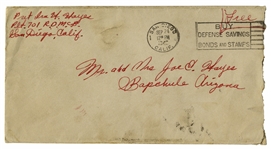 Pvt Ira H. Hayes
Plt. 701 R.D.M.C.B.
San Diego, Calif.
Free
SAN DIEGO
CALIF.
BUY
DEFENSE SAVINGS
BONDS AND STAMPS
Mr. and Mrs Joe E. Hayes
Bapchule Arizona